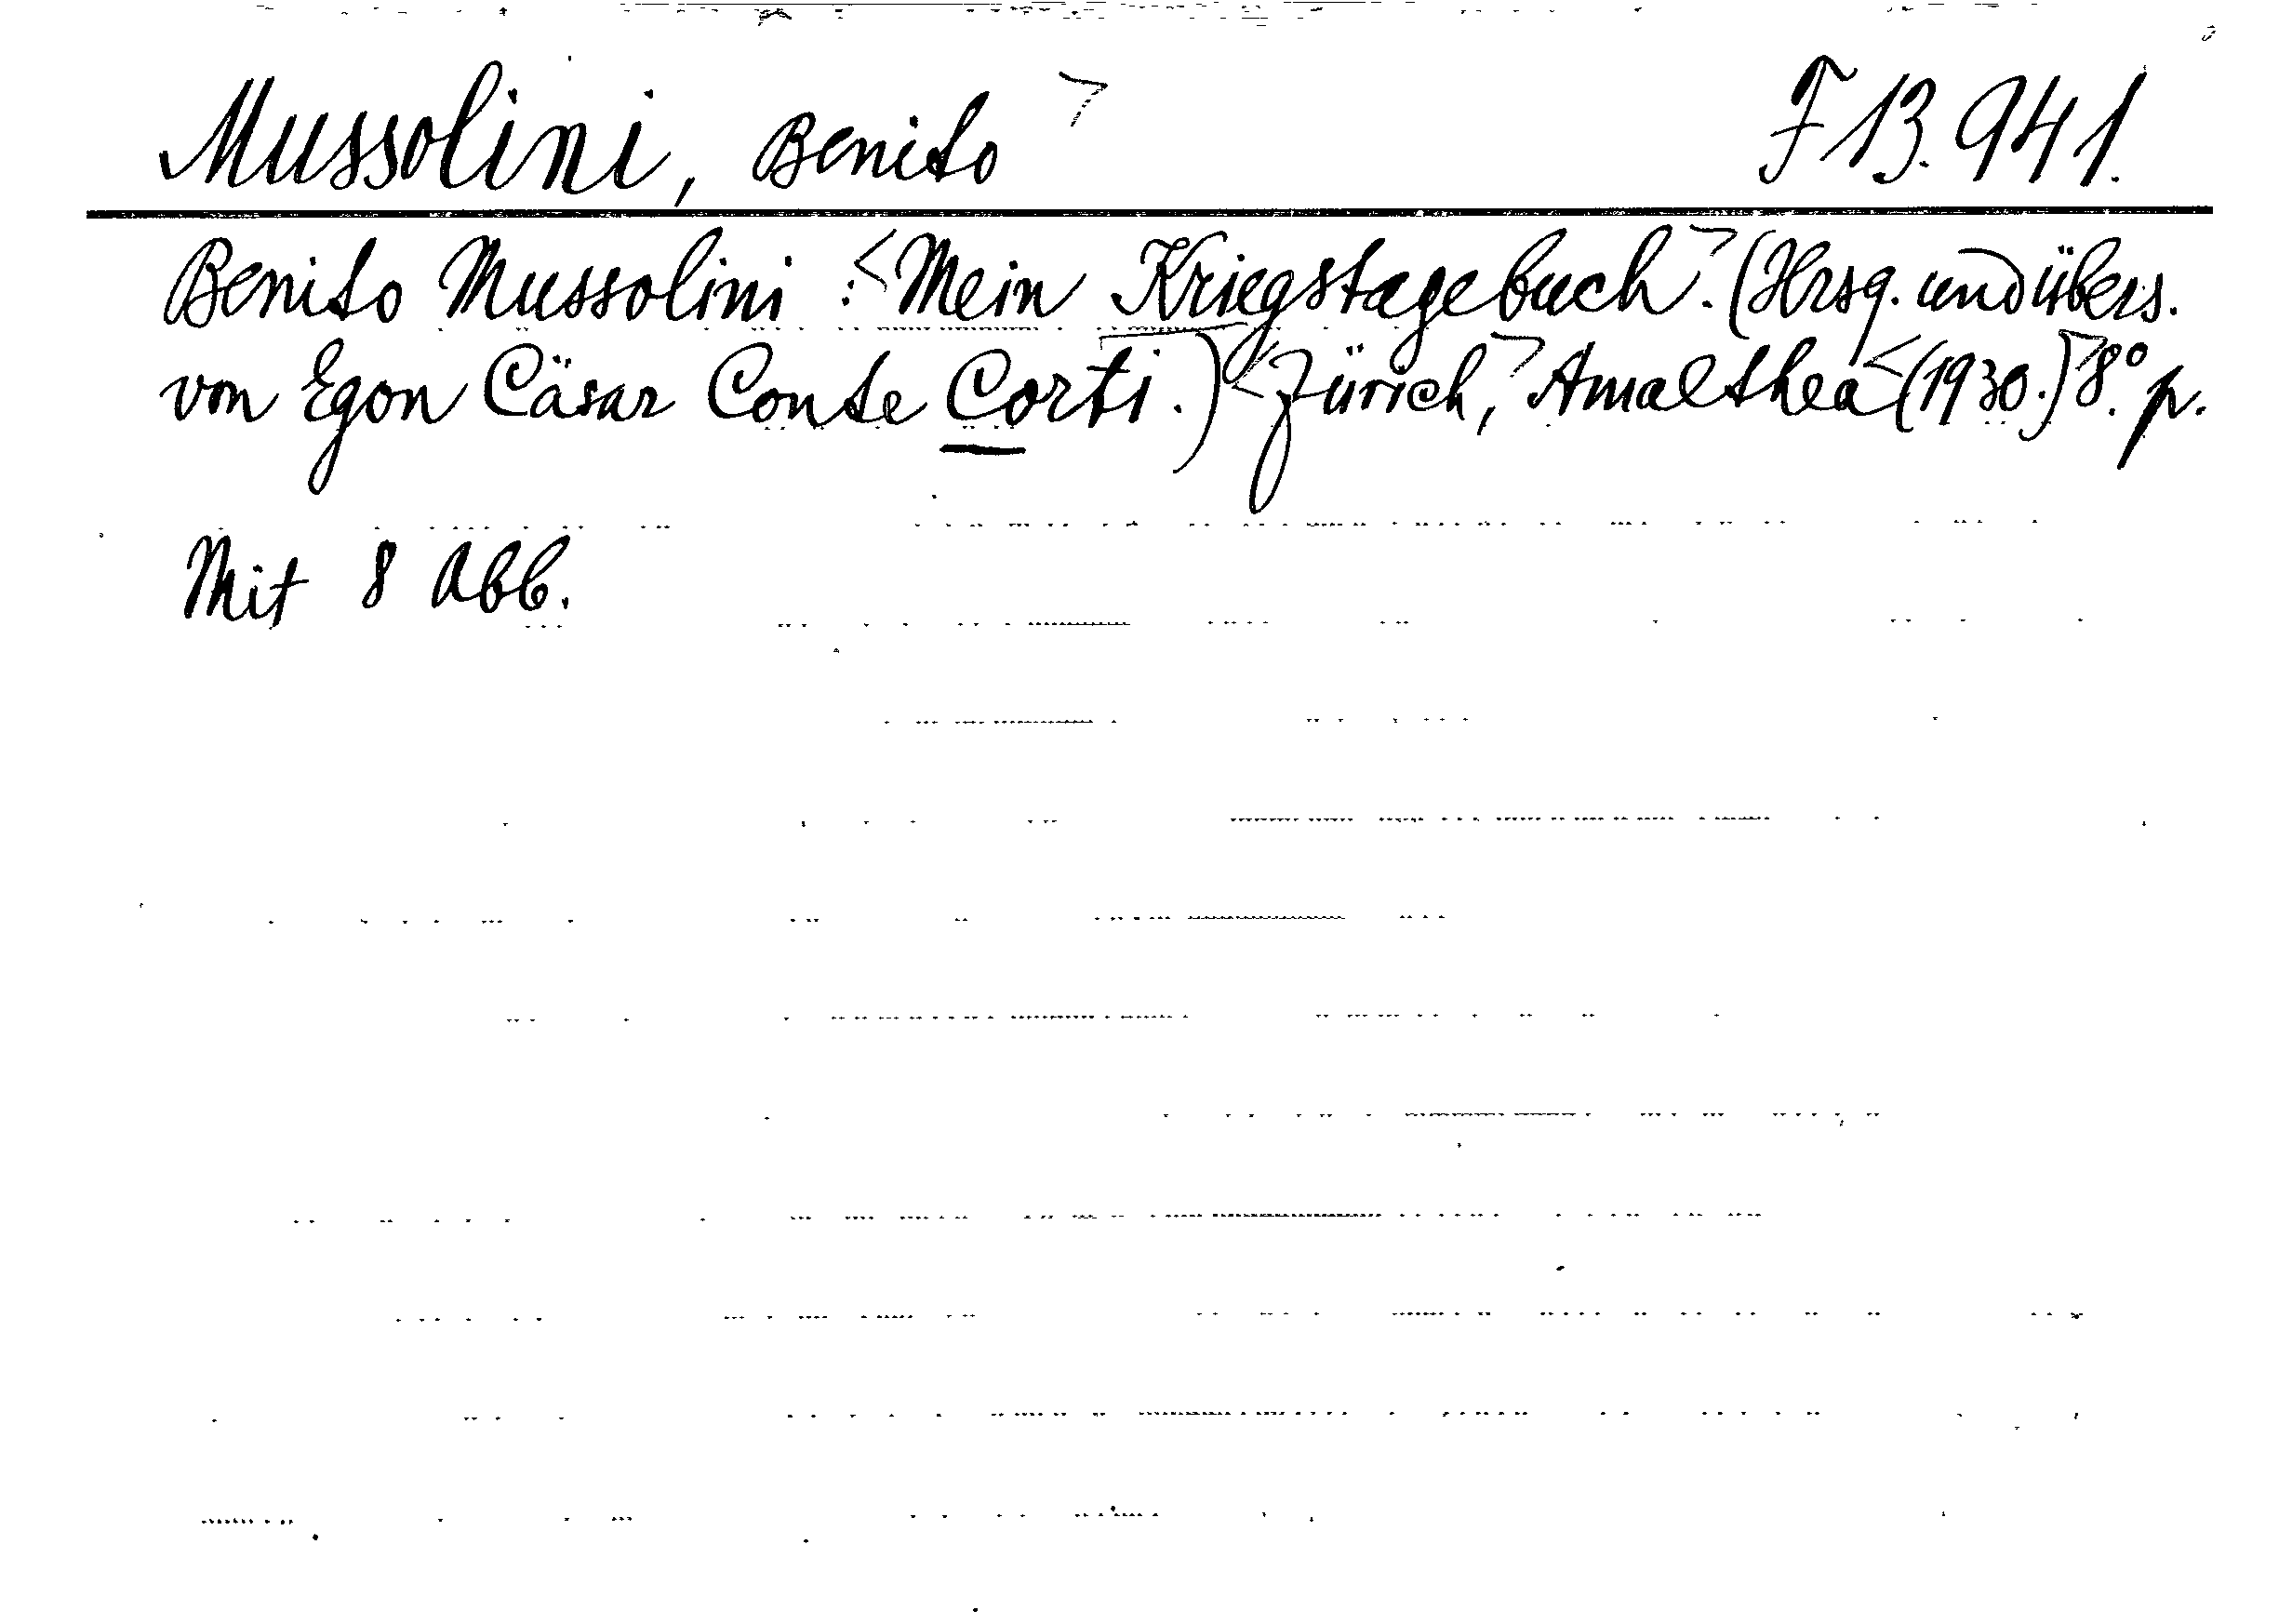 Mussolini, Benito > F 13.941.
Benito Mussolini : <Mein Kriegstagebuch>. (Hrsg. und übers.
von Egon Cäsar Conte Corti.) <Zürich,> Amalthea <(1930.)> 8°. p.
Mit 8 Abb.